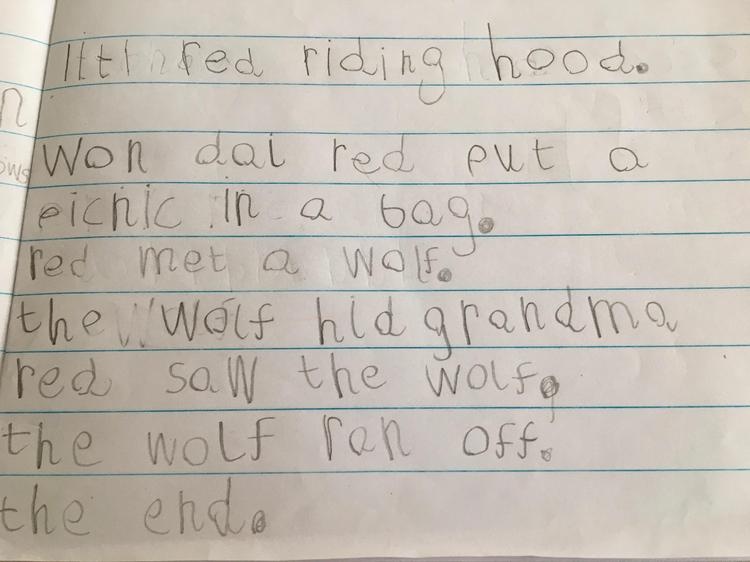 red riding hood.
Won dai red put a
picnic in a bag.
red met a wolf.
the Wolf hid grandma
red saw the wolf.
the wolf ran off.
the end.